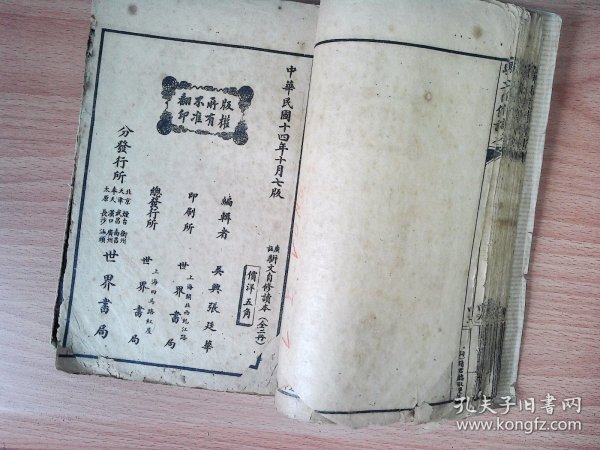 中華民國十四年十月七版
版權所有
不准翻印
廣註
駢文自修讀本（全二冊）
價洋五角
編輯者 吳興張廷華
印刷所 上海閘北西虬江路 世界書局
總發行所 上海四馬路紅屋 世界書局
分發行所
北京 天津 奉天 太原
煙台 武昌 漢口 長沙
衢州 南昌 廣州 汕頭
世界書局
孔夫子旧书网
www.kongfz.com